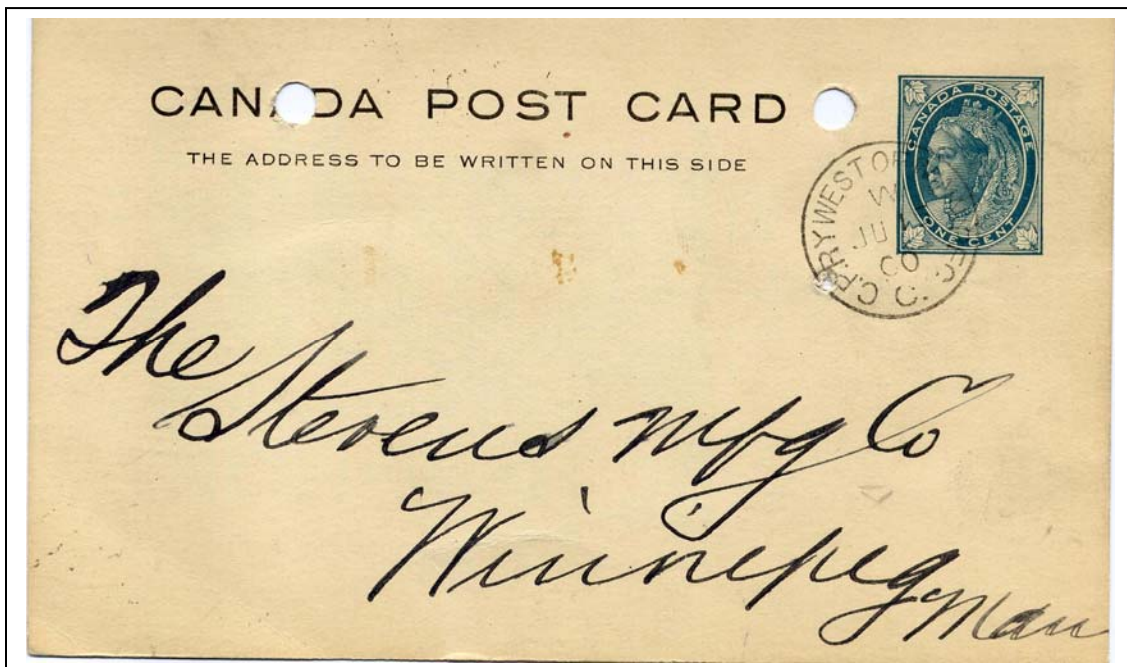 CANADA POST CARD
THE ADDRESS TO BE WRITTEN ON THIS SIDE
CANADA POSTAGE
ONE CENT
C.P.RY WEST OF
W
JU
00
The
Stevens Mfg Co
Winnipeg
Man